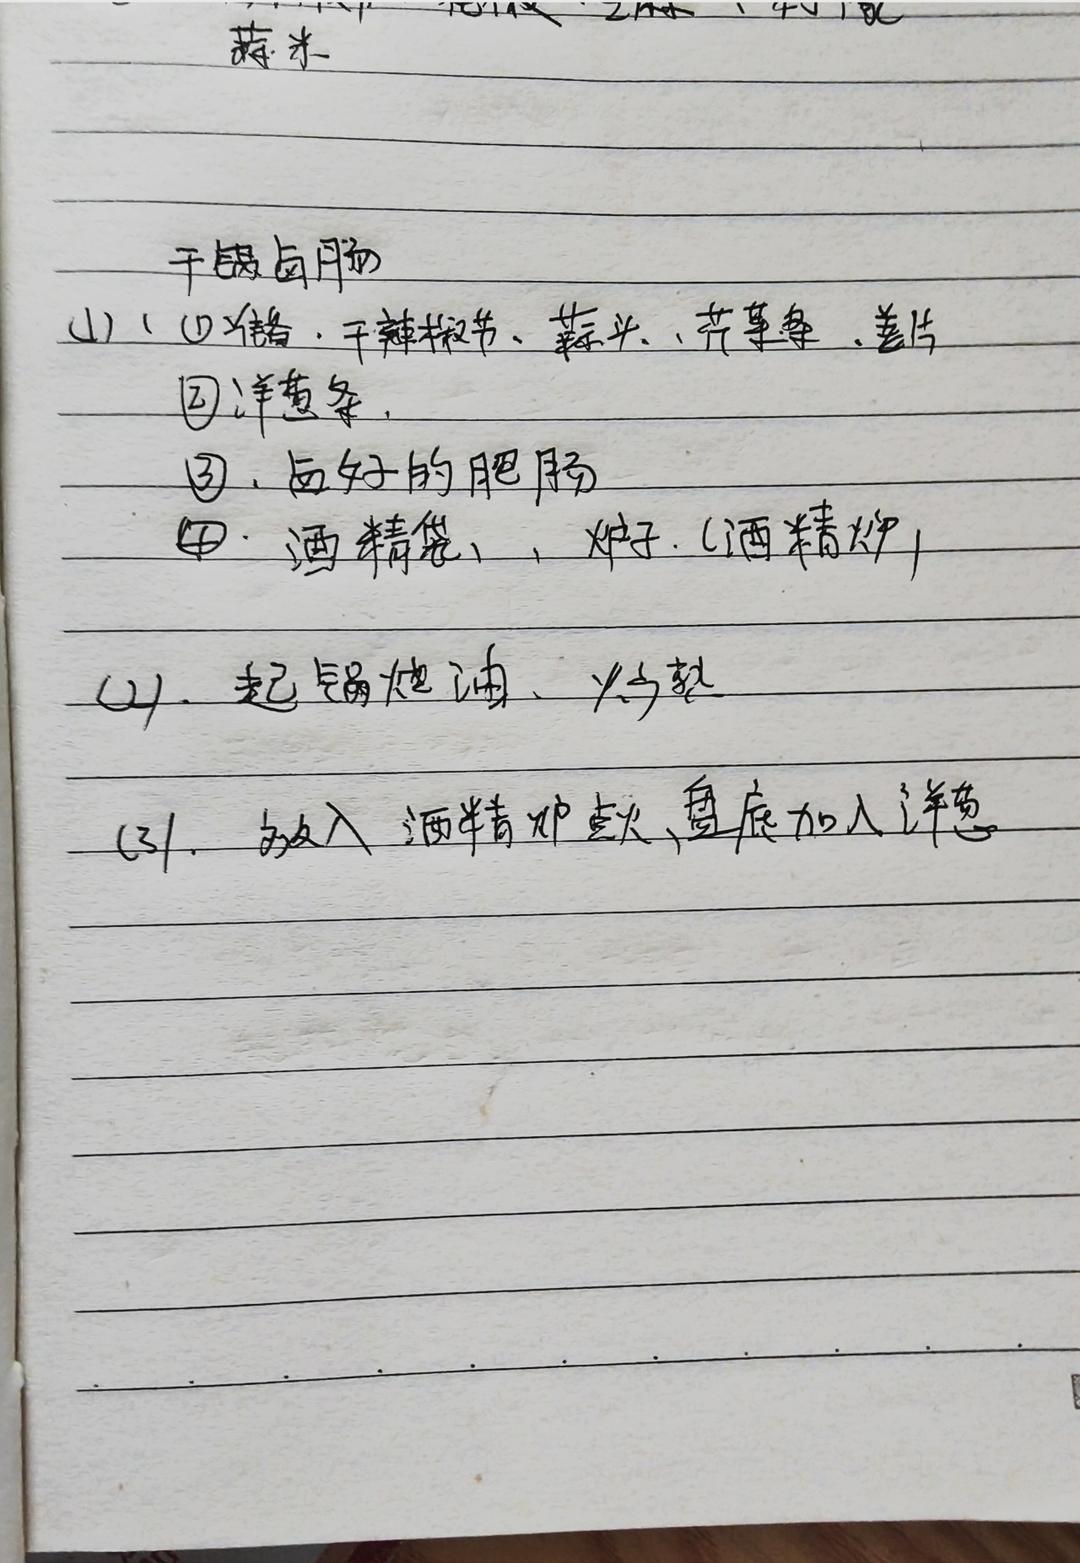 蒜米
干锅卤肠
(1)、①准备.干辣椒节、蒜头、芹菜条、姜片
②洋葱条.
③.卤好的肥肠
④.酒精袋、、炉子.(酒精炉)
(2).起锅烧油、炒熟
(3).放入酒精炉点火、盘底加入洋葱